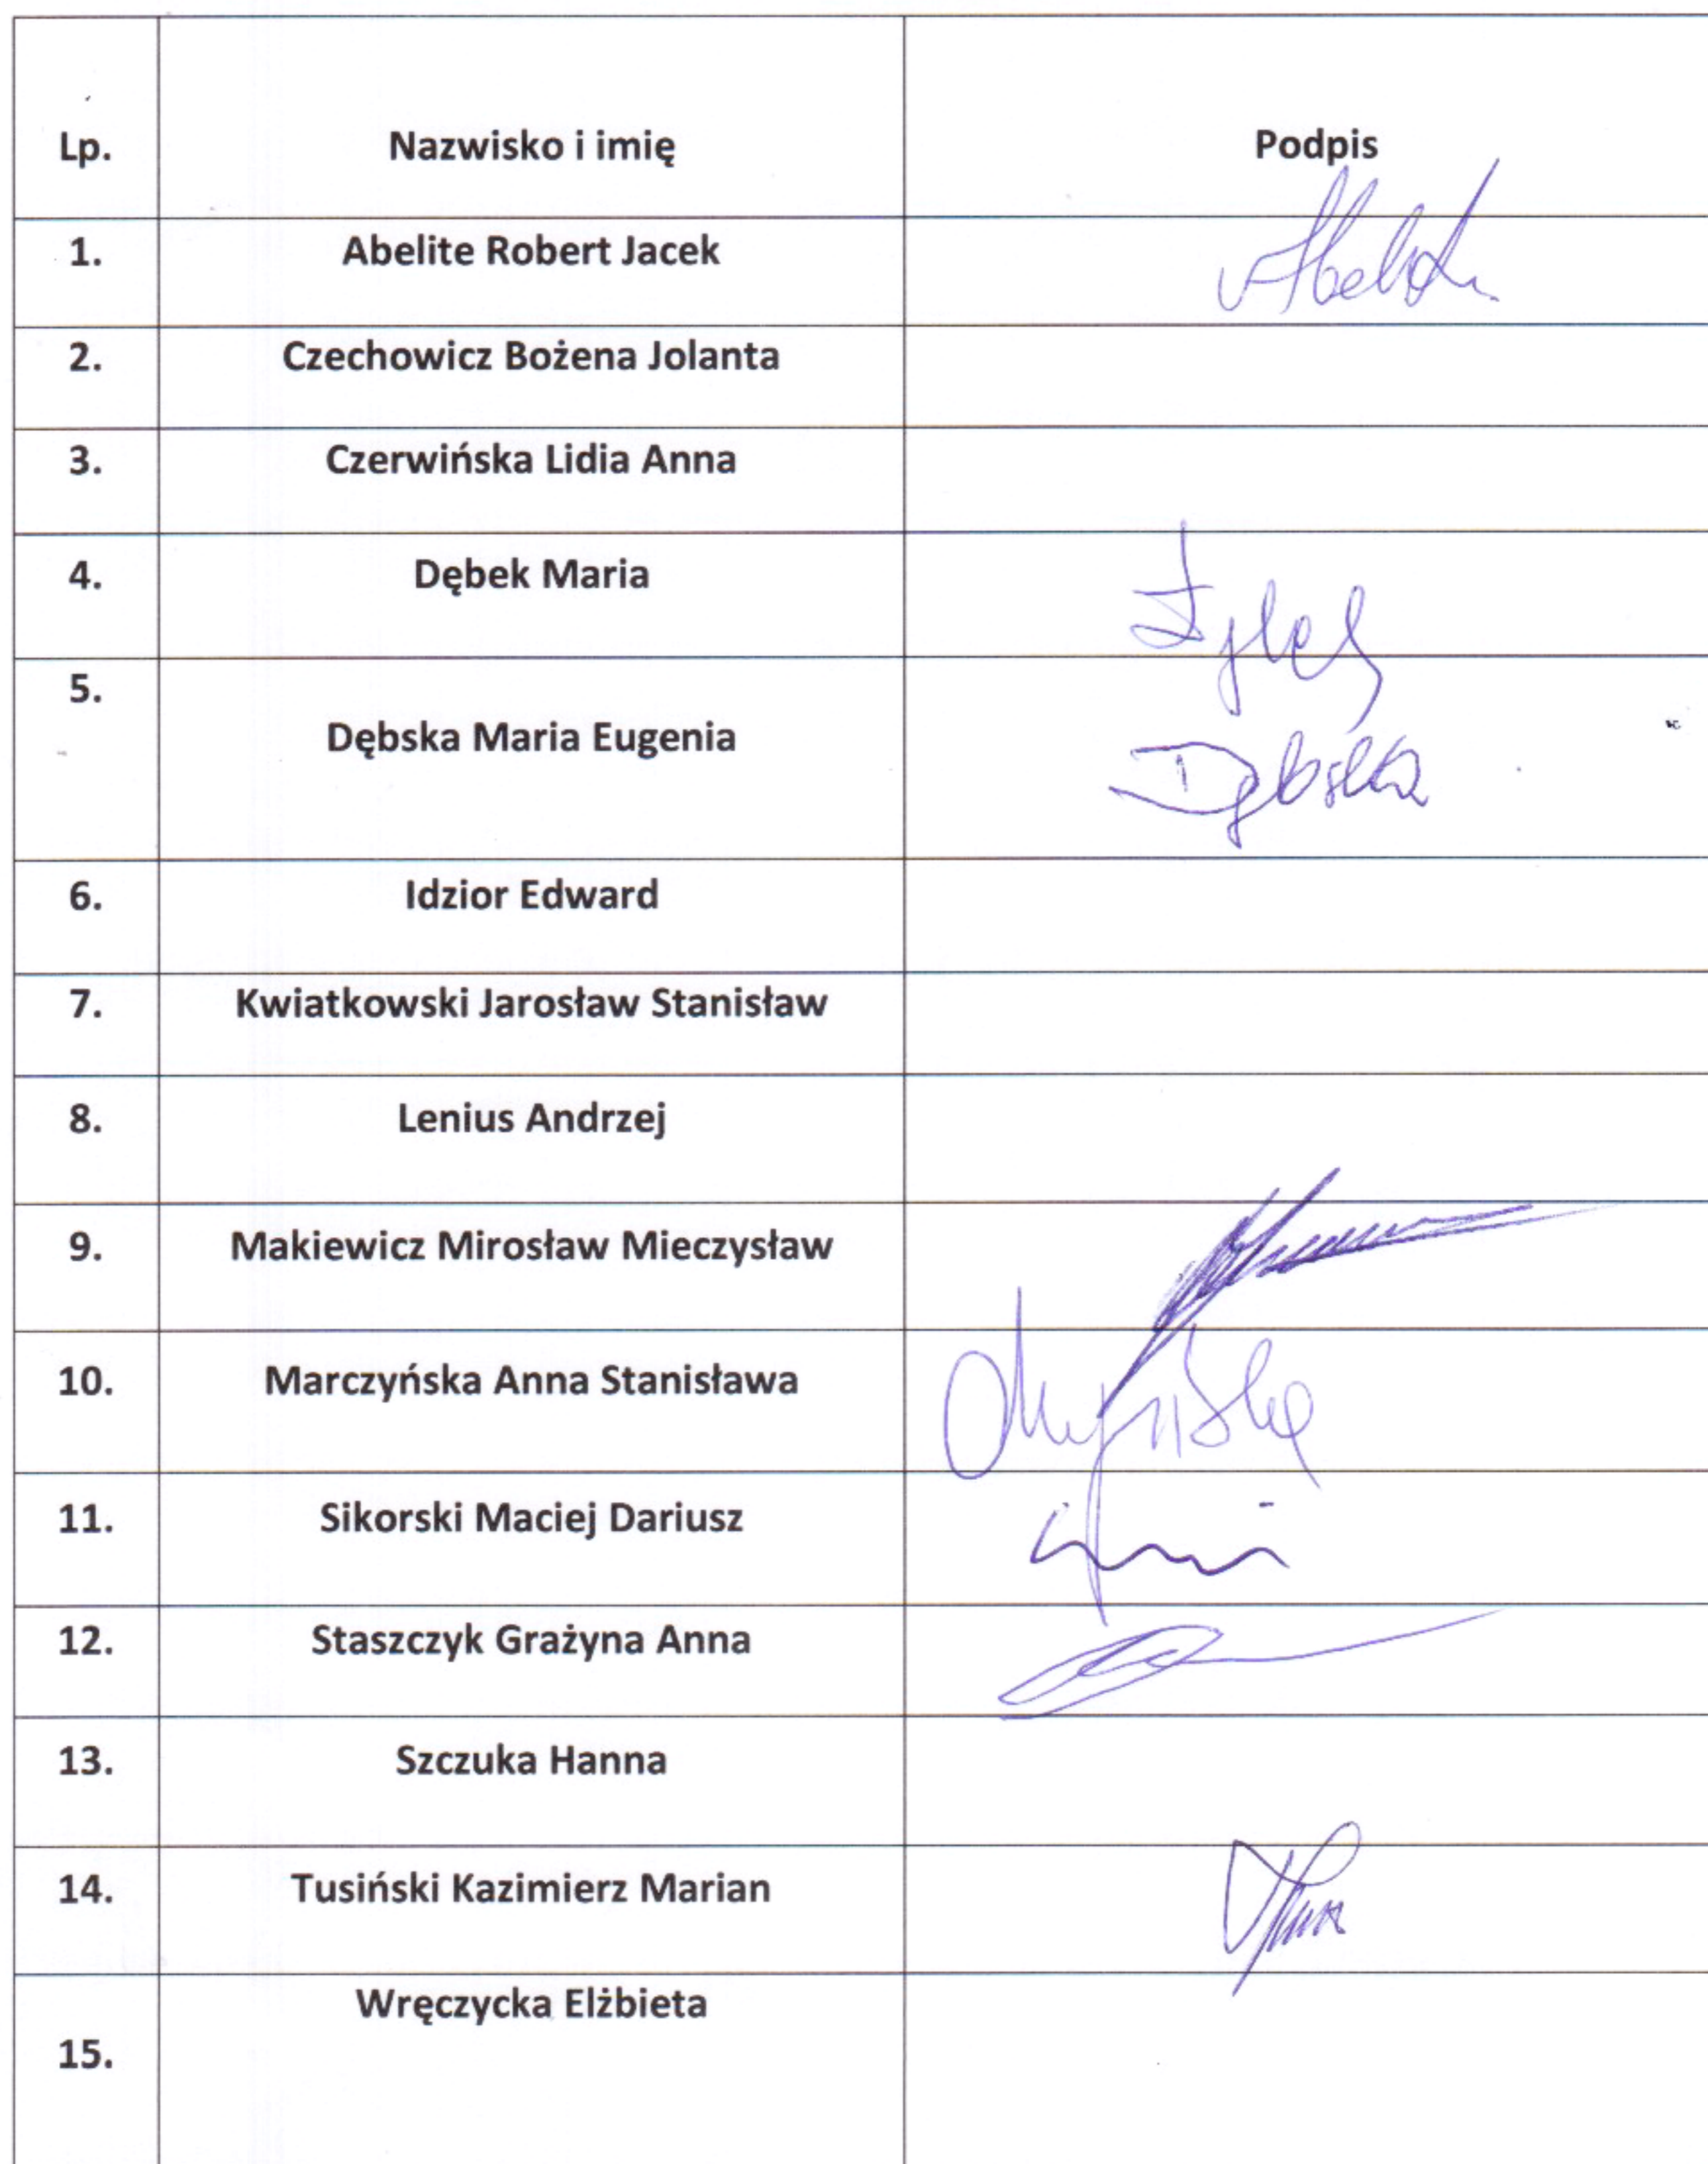 Lp. Nazwisko i imię Podpis
1. Abelite Robert Jacek
2. Czechowicz Bożena Jolanta
3. Czerwińska Lidia Anna
4. Dębek Maria
5. Dębska Maria Eugenia Dębska
6. Idzior Edward
7. Kwiatkowski Jarosław Stanisław
8. Lenius Andrzej
9. Makiewicz Mirosław Mieczysław
10. Marczyńska Anna Stanisława
11. Sikorski Maciej Dariusz
12. Staszczyk Grażyna Anna
13. Szczuka Hanna
14. Tusiński Kazimierz Marian
15. Wręczycka Elżbieta